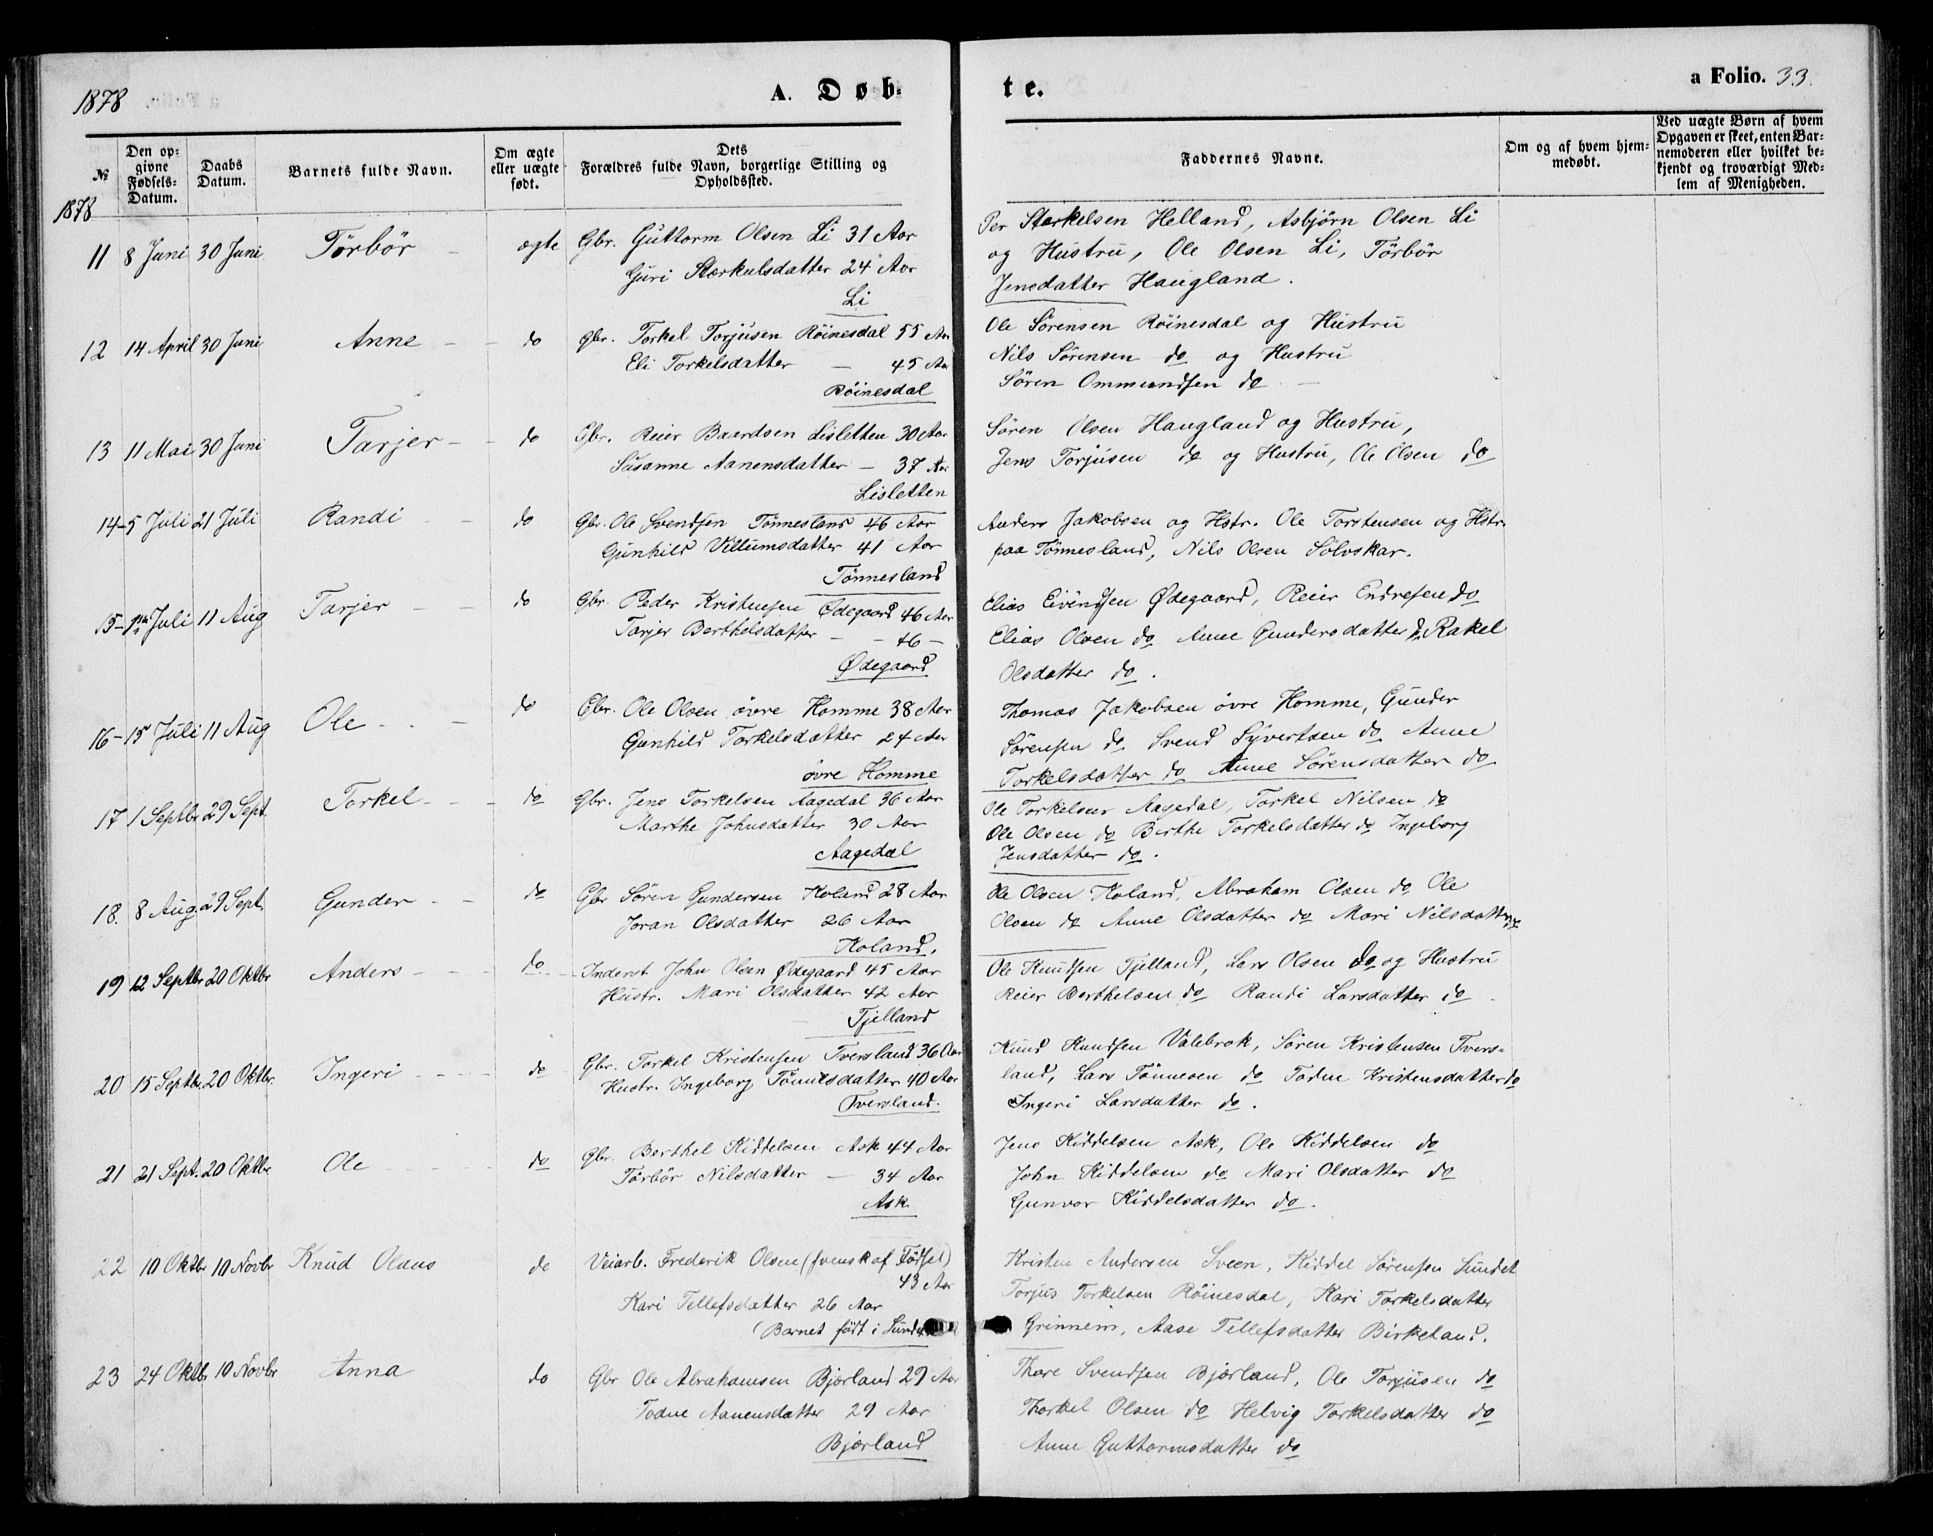 1878
A. Døb-
te.
a Folio. 33.
№
Den op-
givne
Fødsels-
Datum.
Daabs
Datum.
Barnets fulde Navn.
Om ægte
eller uægte
født.
Dets
Forældres fulde Navn, borgerlige Stilling og
Opholdssted.
Faddernes Navne.
Om og af hvem hjem-
medøbt.
Ved uægte Børn af hvem
Opgaven er skeet, enten Bar-
nemoderen eller hvilket be-
kjendt og troværdigt Med-
lem af Menigheden.
1878
11 8 Juni 30 Juni Törbör ægte Gbr. Guttorm Olsen Li 31 Aar
Guri Stærkulsdatter 24 Aar
Li
Per Stærkelsen Helland, Asbjörn Olsen Li
og Hustru, Ole Olsen Li, Törbör
Jensdatter Haugland.
12 14 April 30 Juni Anne do Gbr. Torkel Torjusen Röinesdal 55 Aar
Eli Torkelsdatter — 45 Aar
Röinesdal
Ole Sörensen Röinesdal og Hustru
Nils Sörensen do og Hustru
Sören Ommundsen do
13 11 Mai 30 Juni Tarjer do Gbr. Reier Baardsen Lisletten 30 Aar
Susanne Aanensdatter — 37 Aar
Lisletten
Sören Olsen Haugland og Hustru,
Jens Torjusen do og Hustru, Ole Olsen do
14 5 Juli 21 Juli Randi do Gbr. Ole Svendsen Tönnesland 46 Aar
Gunhild Villumsdatter 41 Aar
Tönnesland
Anders Jakobsen og Hstr. Ole Torstensen og Hstr.
paa Tönnesland, Nils Olsen Sölvskar.
15 Juli 11 Aug Tarjer do Gbr. Peder Kristensen Ødegaard 46 Aar
Tarjer Berthelsdatter — 46 —
Ødegaard
Elias Eivendsen Ødegaard, Reier Endresen do
Elias Olsen do Anne Gundersdatter do Rakel
Olsdatter do.
16 15 Juli 11 Aug Ole do Gbr. Ole Olsen övre Homme 38 Aar
Gunhild Torkelsdatter 24 Aar
övre Homme
Thomas Jakobsen övre Homme, Gunder
Sörensen do Svend Syvertsen do Anne
Torkelsdatter do Anne Sörensdatter do
17 1 Septbr 29 Sept. Torkel do Gbr. Jens Torkelsen Aagedal 36 Aar
Marthe Johnsdatter 30 Aar
Aagedal
Ole Torkelsen Aagedal, Torkel Nilsen do
Ole Olsen do Berthe Torkelsdatter do Ingeborg
Jensdatter do.
18. 8 Aug 29 Sept. Gunder do Gbr Sören Gundersen Koland 28 Aar
Joran Olsdatter 26 Aar
Koland.
Ole Olsen Koland, Abraham Olsen do Ole
Olsen do Anne Olsdatter do Mari Nilsdatter do
19 12 Septbr 20 Oktbr Anders do Inderst John Olsen Ødegaard 45 Aar
Hustr. Mari Olsdatter 42 Aar
Tjelland
Ole Knudsen Tjelland, Lars Olsen do og Hustru
Reier Berthelsen do Randi Larsdatter do
20 15 Septbr 20 Oktbr. Ingeri do Gbr. Torkel Kristensen Tversland 36 Aar
Hustr. Ingeborg Tönnesdatter 40 Aar
Tversland.
Knud Knudsen Valebrok, Sören Kristensen Tvers-
land, Lars Tönnesen do Todne Kristensdatter do
Ingeri Larsdatter do.
21 21 Sept. 20 Oktbr Ole do Gbr. Berthel Kiddelsen Ask 44 Aar
Törbör Nilsdatter — 34 Aar
Ask
Jens Kiddelsen Ask, Ole Kiddelsen do
John Kiddelsen do Mari Olsdatter do
Gunvor Kiddelsdatter do.
22 10 Oktbr 10 Novbr Knud Olaus do Veiarb. Frederik Olsen (svensk af Födsel)
43 Aar
Kari Tellefsdatter 26 Aar
(Barnet födt i
Kristen Andersen Sveen, Kiddel Sörensen Sundet
Torjus Torkelsen Röinesdal, Kari Torkelsdatter
Grinnem, Aase Tellefsdatter Birkeland.
23 24 Oktbr 10 Novbr Anna do Gbr Ole Abrahamsen Bjorland 29 Aar
Todne Aanensdatter 29 Aar
Bjorland
Thore Svendsen Bjorland, Ole Torjusen do
Thorkel Olsen do Helvig Torkelsdatter do
Anne Guttormsdatter do